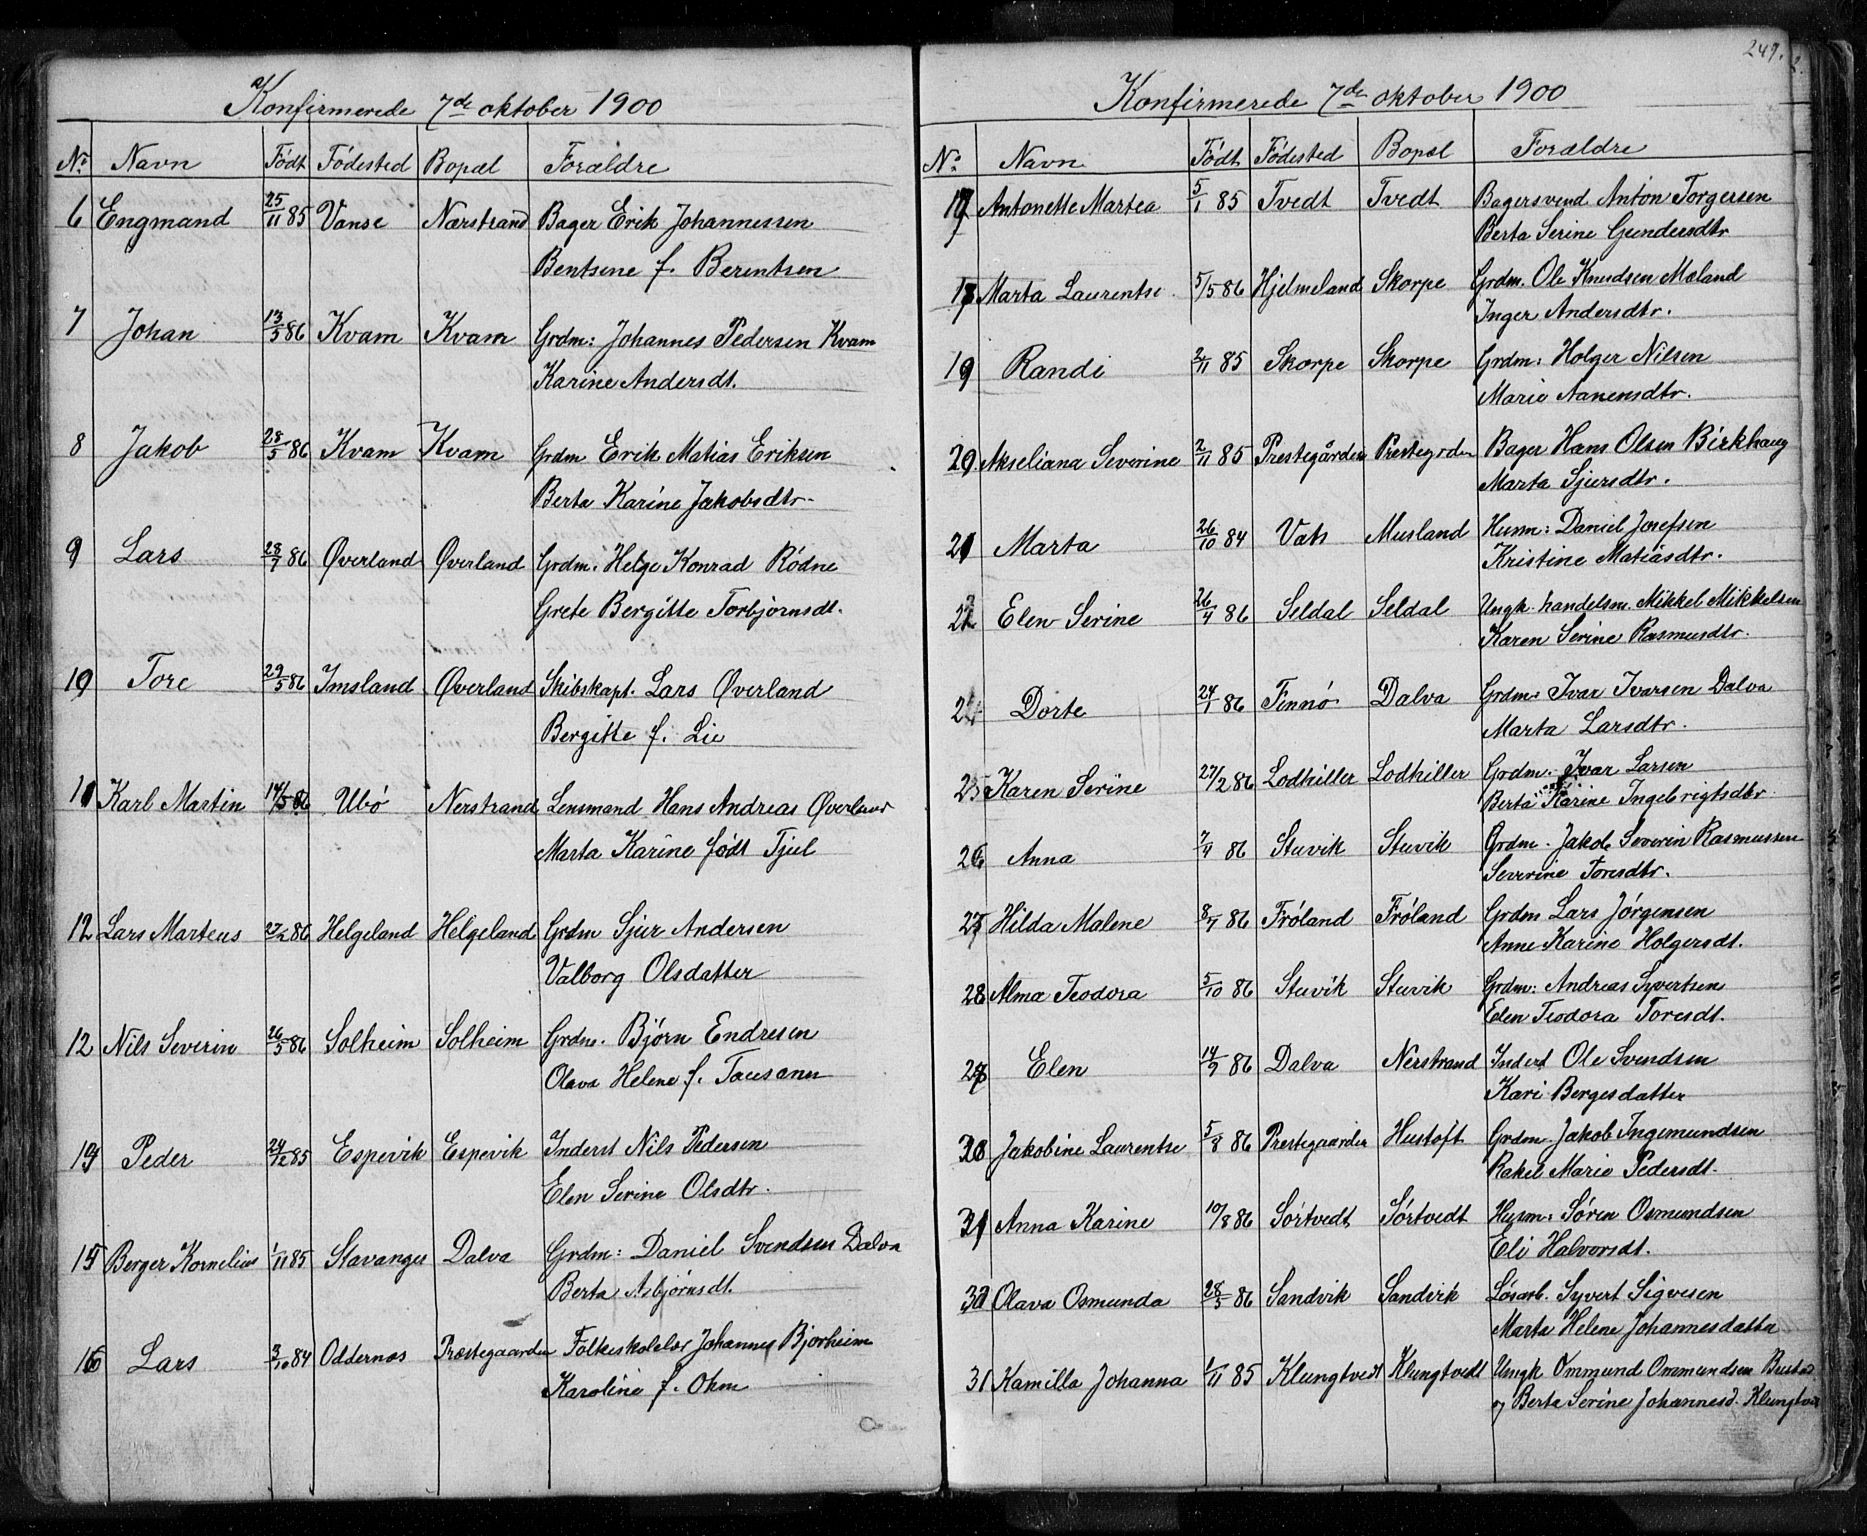 Konfirmerede 7de oktober 1900
No Navn Født Fødested Bopæl Forældre
6 Engmand 25/11 85 Vanse Nærstrand Bager Erik Johannessen
Bentsine f. Berentsen
7 Johan 13/5 86 Kvam Kvam Grdm: Johannes Pedersen Kvam
Karine Andersdt.
8 Jakob 28/5 86 Kvam Kvam Grdm Erik Matias Eriksen
Berta Karine Jakobsdtr.
9 Lars 28/7 86 Øverland Øverland Grdm. Helge Konrad Rødne
Grete Bergitte Torbjørnsdt.
10 Tore 29/5 86 Imsland Øverland Skibskapt. Lars Øverland
Bergitte f. Lie
11 Karl Martin 14/5 86 Ubø Nerstrand Lensmand Hans Andreas Øverland
Marta Karine født Tjul
12 Lars Martens 27/2 86 Helgeland Helgeland Grdm Sjur Andersen
Valborg Olsdatter
12 Nils Severin 26/5 86 Solheim Solheim Grdm. Bjørn Endresen
Olava Helene f.
Peder 24/12 85 Espevik Espevik Inderst Nils Pedersen
Elen Serine Olsdtr.
15 Berger Kornelius 1/11 85 Stavanger Dalva Grdm: Daniel Svendsen Dalva
Berta Asbjørnsdt.
16 Lars 3/10 84 Oddernes Præstegaarden Folkeskolelær Johannes Bjorheim
Karoline f. Ohm
249.
Konfirmerede 7de oktober 1900
No Navn Født Fødested Bopæl Forældre
17 Antonette Martea 5/1 85 Tvedt Tvedt Bagersvend Anton Torgersen
Berta Serine Gundersdtr
18 Marta Laurentse 5/5 86 Hjelmeland Skorpe Grdm. Ole Knudsen Mæland
Inger Andersdtr.
19 Randi 2/11 85 Skorpe Skorpe Grdm: Holger Nilsen
Marie Aanensdtr.
20 Akseliana Severine 2/11 85 Prestegården Prestegrden Bager Hans Olsen Birkhaug
Marta Sjursdtr.
21 Marta 26/10 84 Vats Musland Husm: Daniel Josefsen
Kristine Matiasdtr.
Elen Serine 26/4 86 Seldal Seldal Ungk. handelsm. Mikkel Mikkelsen
Karen Serine Rasmusdtr.
24 Dorte 24/1 86 Finnø Dalva Grdm. Ivar Ivarsen Dalva
Marta Larsdtr.
25 Karen Serine 27/2 86 Lodhiller Lodhiller Grdm. Ivar Larsen
Berta Karine Ingebrigtsdtr
26 Anna 7/4 86 Stuvik Stuvik Grdm. Jakob Severin Rasmussen
Severine Toresdtr.
27 Hilda Malene 8/7 86 Frøland Frøland Grdm Lars Jørgensen
Anne Karine Holgersdt.
28 Alma Teodora 5/10 86 Stuvik Stuvik Grdm: Andreas Syvertsen
Elen Teodora Toresdt.
Elen 14/9 86 Dalva Nerstrand Inderst Ole Svendsen
Kari Bergesdatter
30 Jakobine Laurentse 5/8 86 Prestegaarden Hustoft Grdm. Jakob Ingemundsen
Rakel Marie Pedersdt.
31 Anna Karine 10/8 86 Sørtvedt Sørtvedt Husm: Søren Osmundsen
Eli Halvorsdt.
Olava Osmunda 28/3 86 Sandvik Sandvik Løsarb. Syvert Sigvesen
Marta Helene Johannesdatter
31 Kamilla Johanna 1/11 85 Klungtvedt Klungtvedt Ungk Ommund Ommundsen
og Berta Serine Johannesd. Klungtvedt